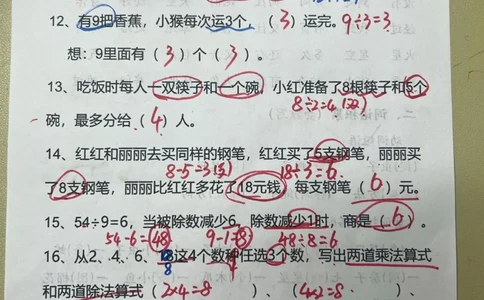 12、有9把香蕉，小猴每次运3个，（3）运完。9÷3=3
想：9里面有（3）个（3）。
13、吃饭时每人一双筷子和一个碗，小红准备了8根筷子和5个
8÷2=4(双)
碗，最多分给（4）人。
14、红红和丽丽去买同样的钢笔，红红买了5支钢笔，丽丽买
8-5=3(支) 18÷3=6
了8支钢笔，丽丽比红红多花了18元钱，每支钢笔（6）元。
15、54÷9=6，当被除数减少6，除数减少1时，商是（6）。
54-6=48 9-1=8 48÷8=6
16、从2、4、6、8这4个数种任选3个数，写出两道乘法算式
和两道除法算式（2×4=8）、（4×2=8）、